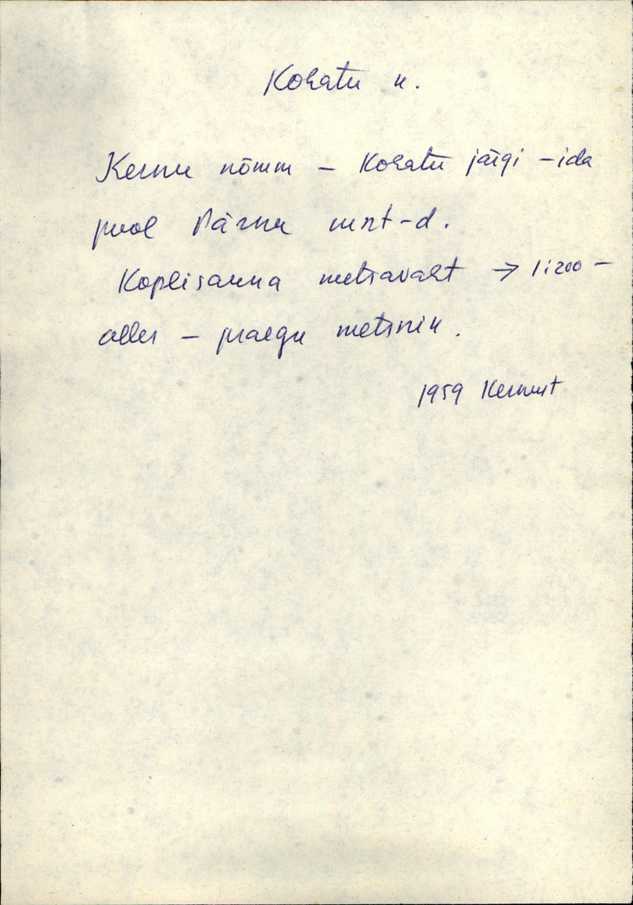 Kohatu k.
Kernu nõmm – Kohatu järgi – ida
pool Pärnu mnt-d.
Koplisauna metsavaht → 1:200 –
alles – praegu metsnik.
1959 Kernust